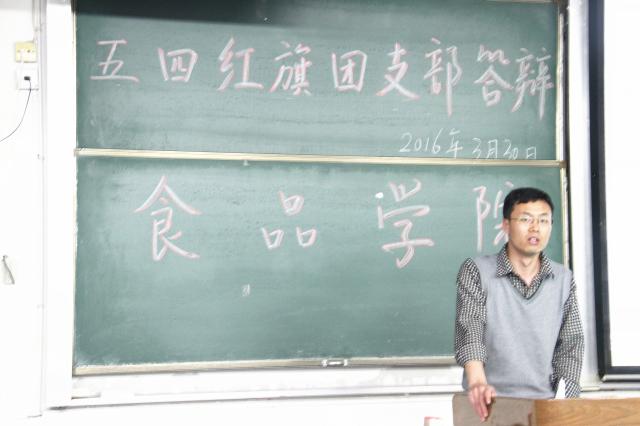 五四红旗团支部答辩
2016年3月30日
食品学院